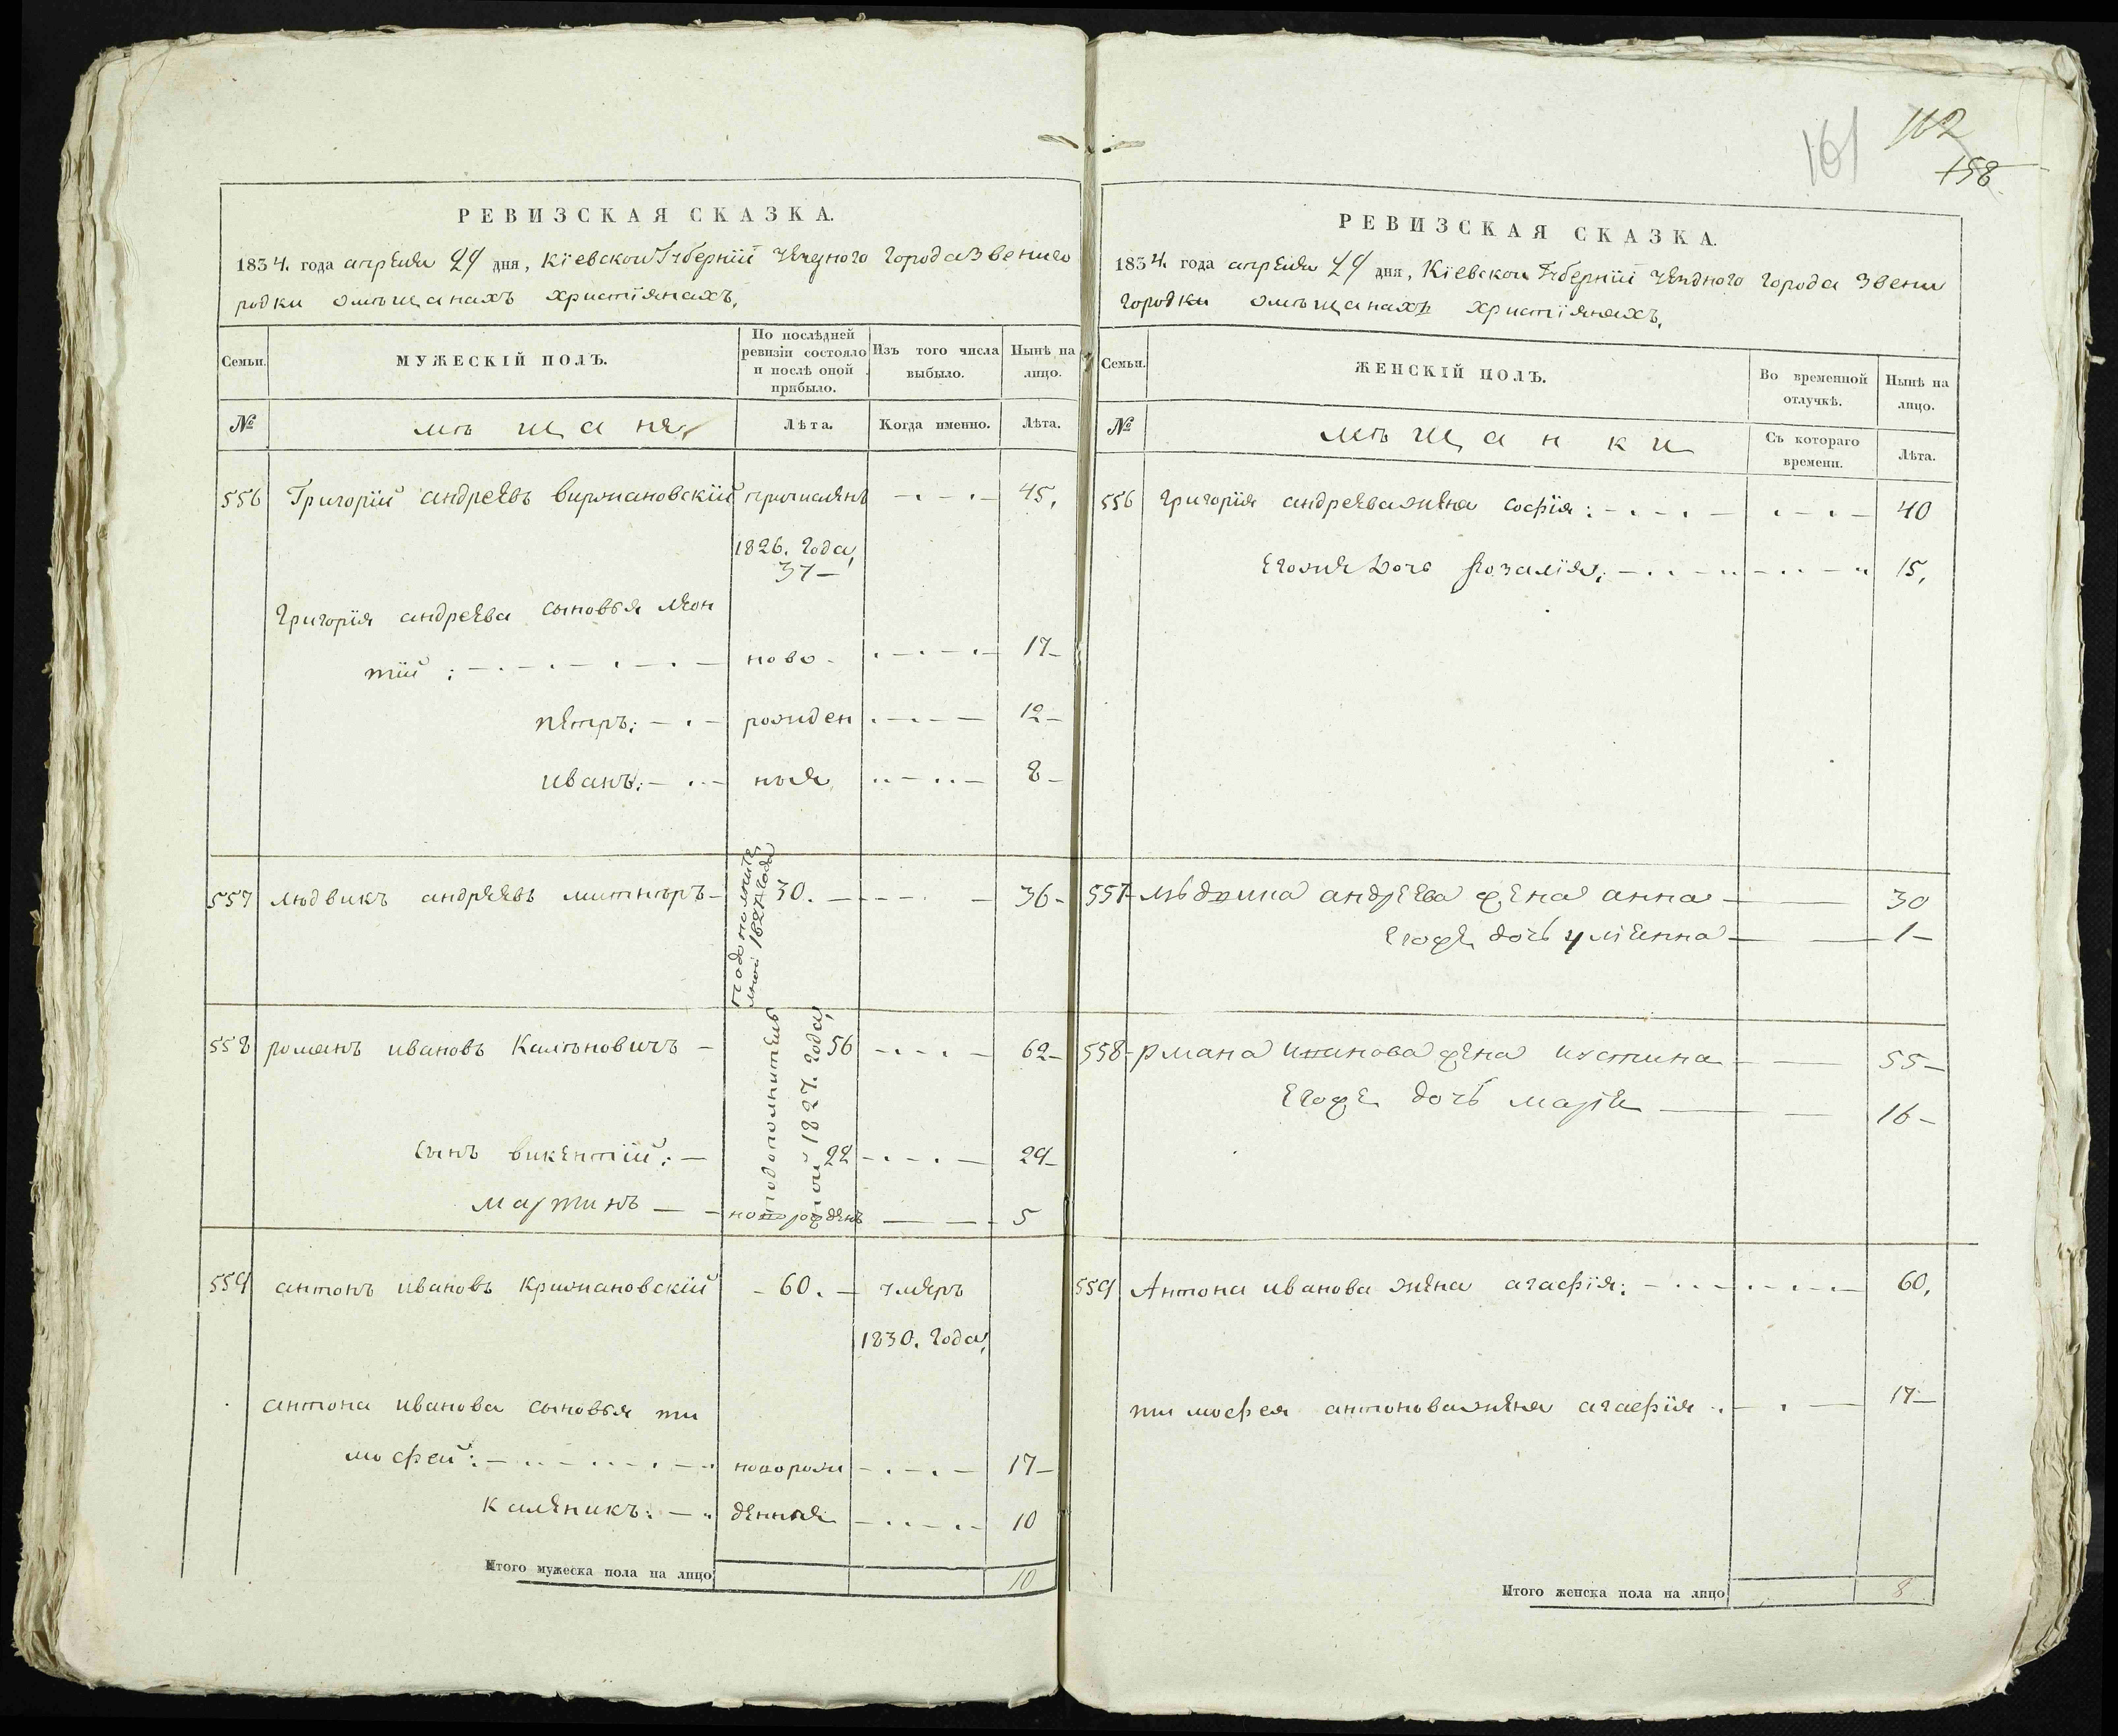 161
162
158
РЕВИЗСКАЯ СКАЗКА.
1834. года апреля 29 дня, Кіевской Губерніи уездного города Звениго
родки о мѣщанахъ христіянахъ.
Семьи.
МУЖЕСКІЙ ПОЛЪ.
По послѣдней
ревизіи состояло
и послѣ оной
прибыло.
Изъ того числа
выбыло.
Нынѣ на
лицо.
№
мѣщане,
Лѣта.
Когда именно.
Лѣта.
556 Григорій андреевъ биржановскій причисленъ 45.
1826. года,
37
григорія андреева сыновья леон
тій: ново 17
петръ: рожден 12
иванъ: ныя 8
557 людвикъ андреевъ митнеръ 30. 36
подополните
лной 1827 года
558 романъ ивановъ Калѣновичъ 56 62
подополнитель
ной 1827. года,
сынъ викентій: 22 29
мартинъ новорожденъ 5
559 антонъ ивановъ крижановскій 60. умеръ
1830. года,
антона иванова сыновья ти
мофей: новорож 17
каленикъ: денныя 10
Итого мужеска пола на лицо 10
РЕВИЗСКАЯ СКАЗКА.
1834. года апреля 29 дня, Кіевской Губерніи уездного города Звени
городки о мѣщанахъ христіянахъ.
Семьи.
ЖЕНСКІЙ ПОЛЪ.
Во временной
отлучкѣ.
Нынѣ на
лицо.
№
мѣщанки
Съ котораго
времени.
Лѣта.
556 григорія андреева жена софія: 40
Егоже дочь Розалія: 15,
557 андреева жена анна 30
Егоже дочь 1
558 рмана иванова жена иустина 55
Егоже дочь марія 16
559 Антона иванова жена агафія: 60,
тимофея антонова жена агафія 17
Итого женска пола на лицо 8